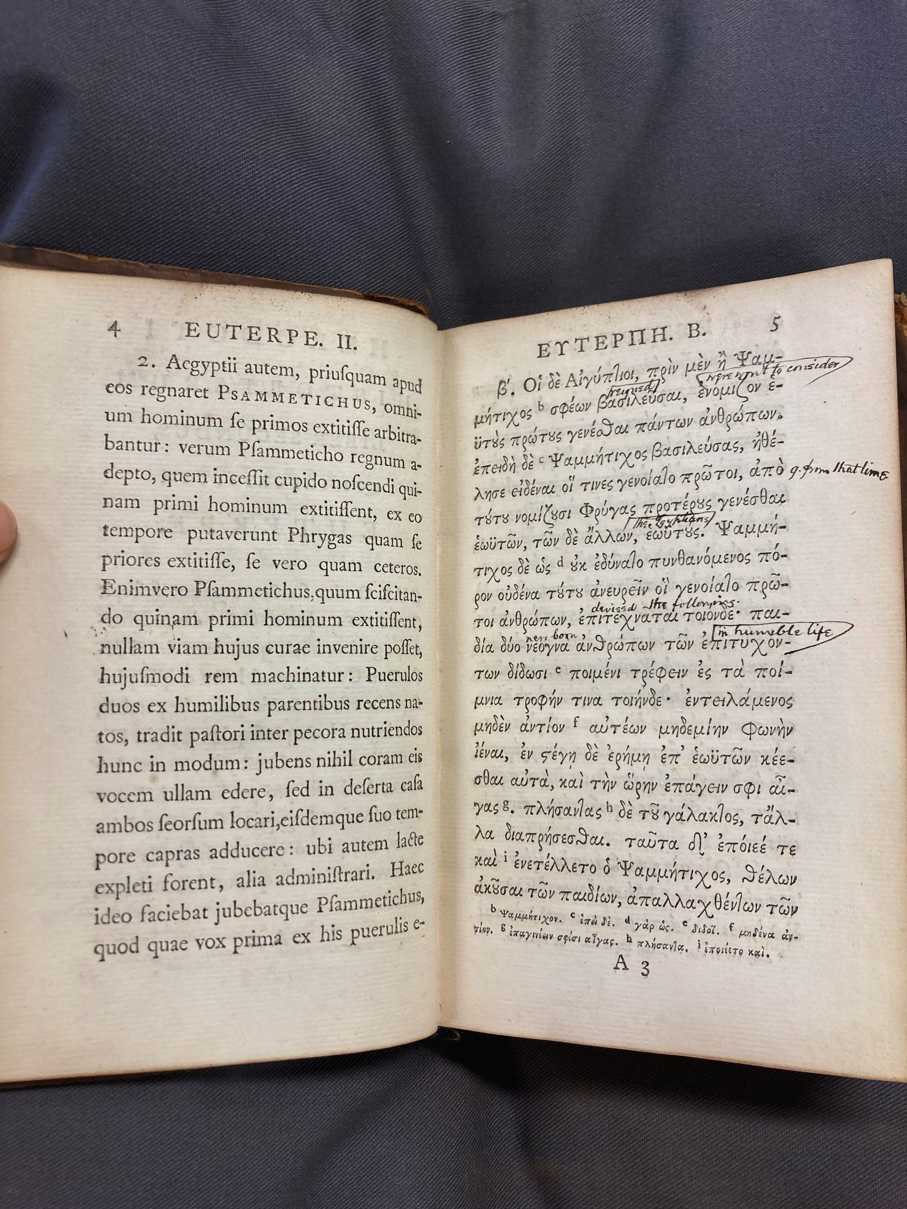 4 EUTERPE. II.
2. Aegyptii autem, priuſquam apud
eos regnaret PSAMMETICHUS, omni-
um hominum ſe primos extitiſſe arbitra-
bantur: verum Pſammeticho regnum a-
depto, quem inceſſit cupido noſcendi qui-
nam primi hominum extitiſſent, ex eo
tempore putaverunt Phrygas quam ſe
priores extitiſſe, ſe vero quam ceteros.
Enimvero Pſammetichus, quum ſciſcitan-
do quinam primi hominum extitiſſent,
nullam viam hujus curae invenire poſſet,
hujuſmodi rem machinatur: Puerulos
duos ex humilibus parentibus recens na-
tos, tradit paſtori inter pecora nutriendos
hunc in modum: jubens nihil coram eis
vocem ullam edere, ſed in deſerta caſa
ambos ſeorſum locari, eiſdemque ſuo tem-
pore capras adducere: ubi autem lacte
expleti forent, alia adminiſtrari. Haec
ideo faciebat jubebatque Pſammetichus,
quod quae vox prima ex his puerulis e-
ΕΥΤΕΡΠΗ. Β. 5
β'. Οἱ δὲ Αἰγύπλιοι, πρὶν μὲν ἢ Ψαμ-
were wont to consider
reigned
μήτιχος b σφέων βασιλεῦσαι, ἐνόμιζον ἑ-
ϋτὺς πρώτȣς γενέσθαι πάντων ἀνθρώπων.
ἐπειδὴ δὲ c Ψαμμήτιχος βασιλεύσας, ἠθέ-
λησε εἰδέναι οἵ τινες γενοίαλο πρῶτοι, ἀπὸ
q. from that time
τȣ́τȣ νομίζȣσι Φρύγας προτέρȣς γενέσθαι
the Egyptians
ἑωϋτῶν, τῶν δὲ ἄλλων, ἑωϋτȣ́ς. Ψαμμή-
τιχος δὲ ὡς d ȣ̓κ ἐδύναλο πυνθανόμενος πό-
ρον οὐδένα τȣ́τȣ ἀνευρεῖν οἳ γενοίαλο πρῶ-
devised the following
τοι ἀνθρώπων, ἐπιτεχνᾶται τοιόνδε· παι-
new born in humble life
δία δύο νεογνὰ ἀνθρώπων τῶν ἐπιτυχόν-
των δίδωσι e ποιμένι τρέφειν ἐς τὰ ποί-
μνια τροφήν τινα τοιήνδε· ἐντειλάμενος
μηδὲν ἀντίον f αὐτέων μηδεμίην φωνὴν
ἱέναι, ἐν ϛέγῃ δὲ ἐρήμῃ ἐπ' ἑωϋτῶν κέε-
σθαι αὐτὰ, καὶ τὴν ὥρην ἐπάγειν σφι αἶ-
γας g. πλήσανλας h δὲ τȣ͂ γάλακλος, τἄλ-
λα διαπρήσεσθαι. ταῦτα δ' ἐπόιεέ τε
καὶ i ἐνετέλλετο ὁ Ψαμμήτιχος, θέλων
ἀκȣ͂σαι τῶν παιδίων, ἀπαλλαχθένλων τῶν
b Ψαμμήτιχον. c ἐπεὶ δὲ. d γὰρ ὡς. e διδοῖ. f μηδένα ἀν-
τίον. g ἐπαγινέων σφίσι αἶγας. h πλήσανλα. i ἐποιέετο καὶ.
A 3